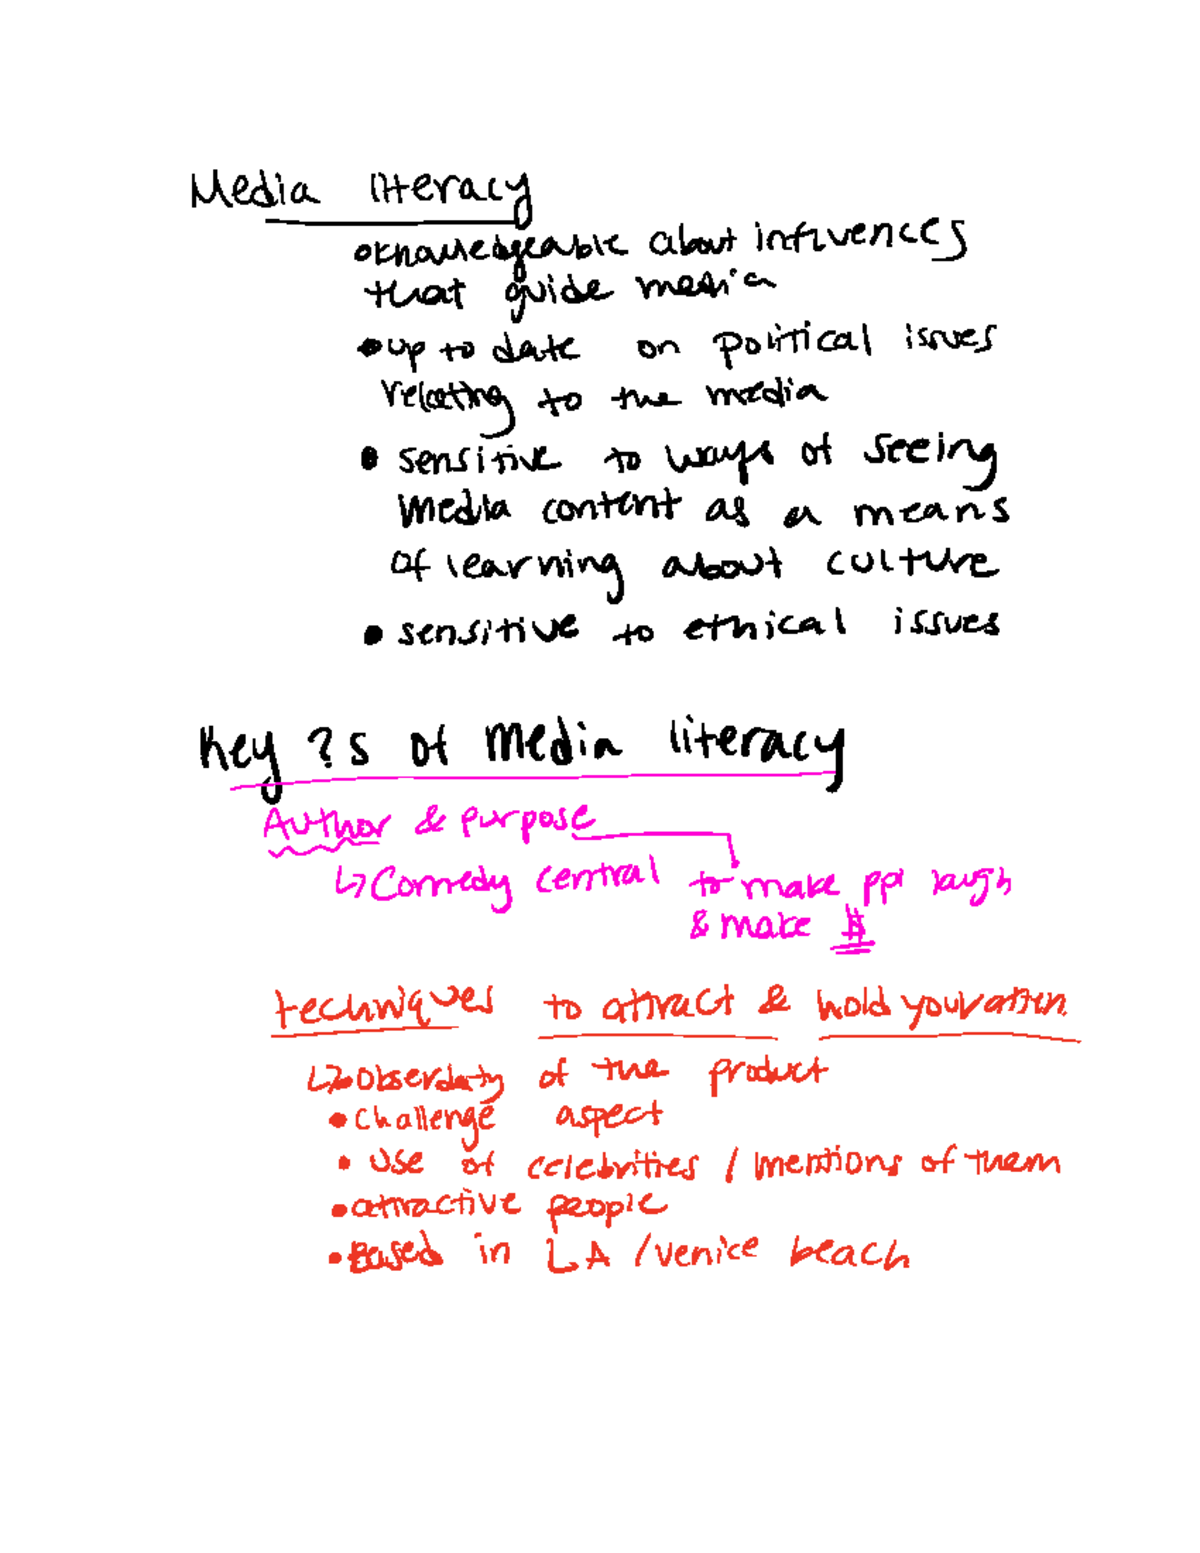 Media literacy
• knowledgeable about influences
that guide media
• up to date on political issues
relating to the media
• sensitive to ways of seeing
media content as a means
of learning about culture
• sensitive to ethical issues
Key ?s of Media literacy
Author & purpose
↳ Comedy central to make ppl laugh
& make $
techniques to attract & hold your attn.
↳ • of the product
• Challenge aspect
• use of celebrities / mentions of them
• attractive people
• Based in LA / venice beach